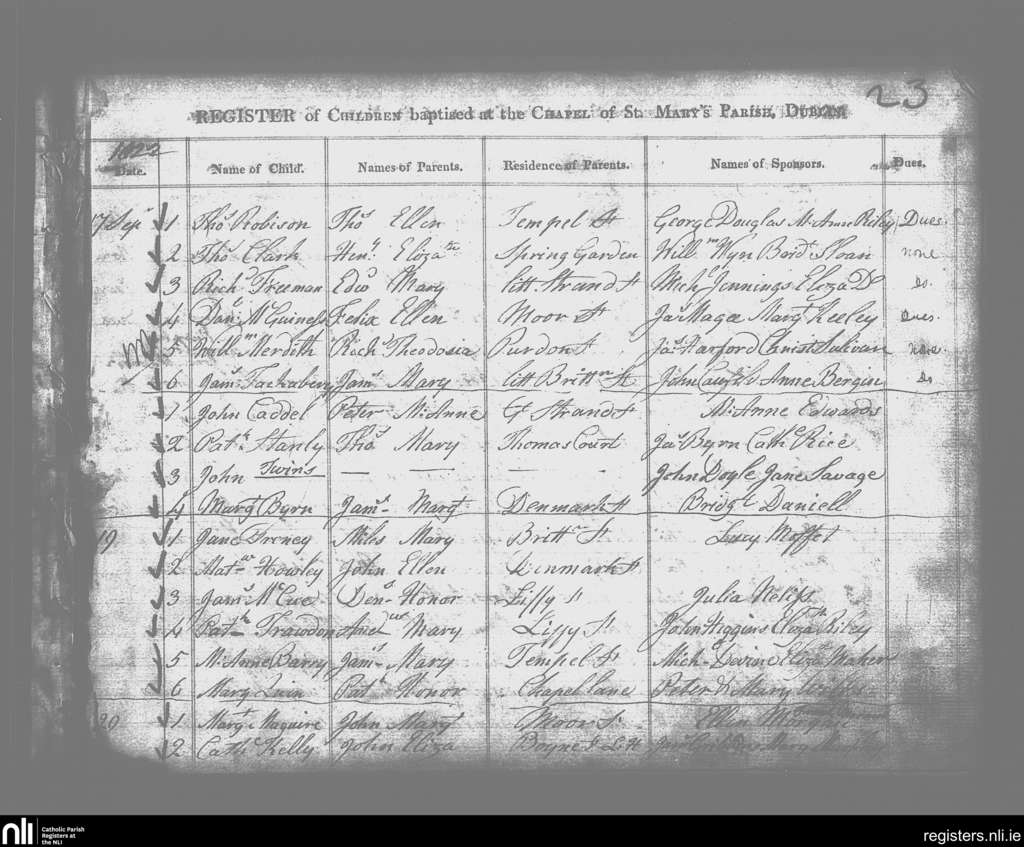 23
REGISTER of CHILDREN baptised at the CHAPEL of St. MARY'S PARISH, DUBLIN
1822
Date. Name of Child. Names of Parents. Residence of Parents. Names of Sponsors. Dues.
17 Sepr 1 Thos Robison Thos Ellen Tempel St George Douglas M. Anne Riley Dues
2 Thos Clark Heny Elizath Spring Garden Willm Wyn Bordt Sloan none
3 Richd Freeman Edwd Mary litt. Strand St Michl Jennings Eliza Do do.
4 Danl McGuiness Felix Ellen Moor St Jas Magee Margt Keeley Dues.
5 Willm Merdith Richd Theodosia Purdon St Jas Harford Christ Sulivan none
6 Jams Jams Mary litt Brittn St John Anne Bergin do
1 John Caddel Peter M. Anne Gt Strand St M. Anne Edwards
2 Patk Stanly Thos Mary Thomas Court Jas Byrn Cathe Rice
3 John Twins — — — — John Doyle Jane Savage
4 Margt Byrn Jams Margt Denmark St Bridgt Daniell
19 1 Jane Freney Miles Mary Brittn St Lucy Moffet
2 Matw Howley John Ellen Denmark St
3 Jams McCue Dens Honor Liffy St Julia
4 Patk Andw Mary Liffy St John Higgins Elizath Riley
5 M. Anne Barry Jams Mary Tempel St Michl Devine Elizath Maher
6 Mary Quin Patk Honor Chapel lane Peter & Mary
20 1 Margt Maguire John Margt Moor St Ellen
2 Cathe Kelly John Eliza Boyne St Mary
nli Catholic Parish
Registers at
the NLI
registers.nli.ie